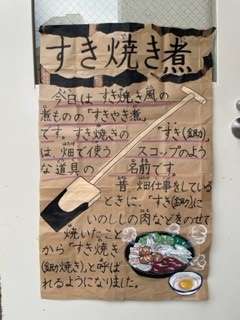 すき焼き煮
今日は すき焼き風の
煮ものの「すきやき煮」
です。すき焼きの 「すき(鋤)」
は、畑で使う スコップのよう
な道具の 名前です。
昔 畑仕事をしている
ときに、「すき(鋤)」に
いのしし の肉などをのせて
焼いたこと
から「すき焼き
(鋤焼き)」と呼ば
れるようになりました。